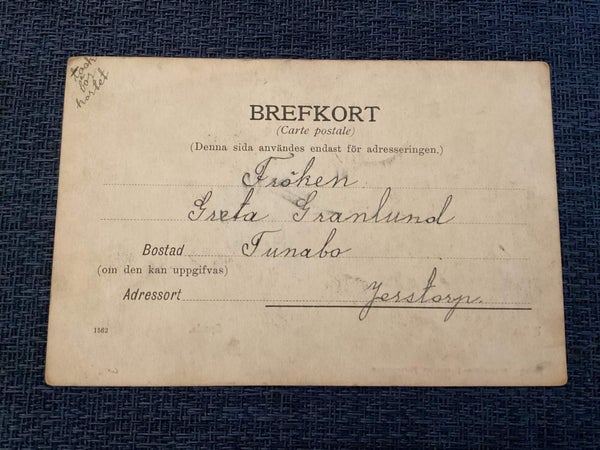 tack
för
kortet
BREFKORT
(Carte postale)
(Denna sida användes endast för adresseringen.)
Fröken
Greta Granlund
Bostad Tunabo
(om den kan uppgifvas)
Adressort Jerstorp.
1562